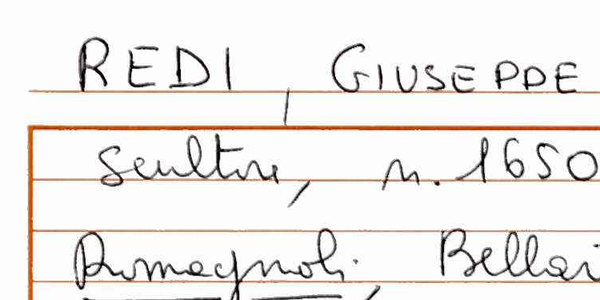 REDI, GIUSEPPE
Scultore, n. 1650
Romagnoli, Bellar